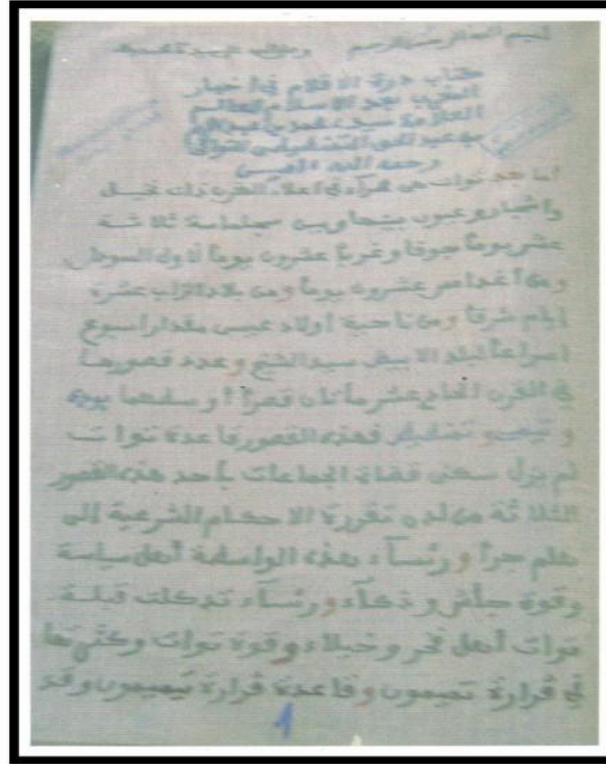 بسم الله الرحمن الرحيم وصلى الله على
كتاب درة الاقلام في اخبار
المغرب بعد الاسلام للعالم
العلامة سيد محمد بن عبد الكريم
بن عبد الحق التمنطيطي التواتي
رحمه الله
اما بعد توات هي صحراء في اعلا المغرب ذات نخيل
واشجار وعيون بينها وبين سجلماسة ثلاثة
عشر يوما جوفا وغربا عشرون يوما لاول السودان
ومن غدامس عشرون يوما ومن بلاد الزاب عشرة
ايام شرقا ومن ناحية اولاد عيسى مقدار اسبوع
لبلد الابيض سيد الشيخ وعدد قصورها
في القرن الحادي عشر مائتان قصرا اوسطها بودة
وتيمي وتمنطيط فهذه القصور قاعدة توات
لم يزل سكنى قضاة الجماعات بأحد هذه القصور
الثلاثة من لدن تقررة الاحكام الشرعية إلى
هلم جرا ورئساء هذه الواسطة أهل سياسة
وقوة جأش وذكاء ورئساء تدكلت قبلة
توات أهل فخر وخيلاء وقوة توات وكثرتها
في قرارة تيميمون وقاعدة قرارة تيميمون وقد
1